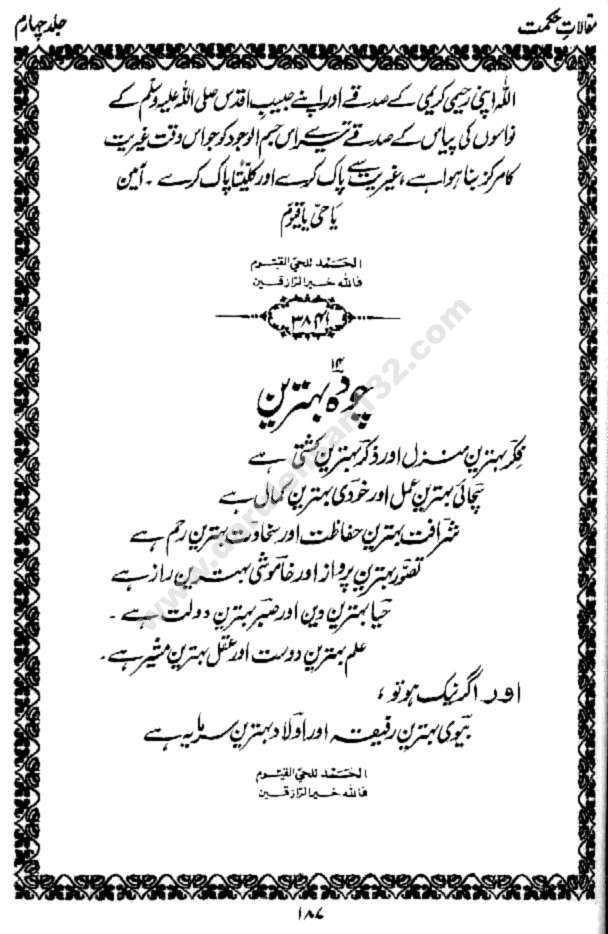 مقالاتِ حکمت
جلد چہارم
اللہ اپنی رحیمی کریمی کے صدقے اور اپنے حبیبِ اقدس صلی اللہ علیہ وسلم کے
نواسوں کی پیاس کے صدقے تیرے اس جسم الوجود کو جو اس وقت غیریت
کا مرکز بنا ہوا ہے، غیریت سے پاک کرے اور کلیتاً پاک کرے ۔ آمین
یا حیّ یا قیوم
الحمد للحی القیوم
فاللہ خیر الرازقین
۳۸
۱۴
چودہ بہترین
فکر بہترین منزل اور ذکر بہترین کشتی ہے
سچائی بہترین عمل اور خودی بہترین کمال ہے
شرافت بہترین حفاظت اور سخاوت بہترین رحم ہے
تصوّر بہترین پرواز اور خاموشی بہترین راز ہے
حیا بہترین دین اور صبر بہترین دولت ہے ۔
علم بہترین دوست اور عقل بہترین مشیر ہے ۔
اور اگر نیک ہو تو ،
بیوی بہترین رفیقہ اور اولاد بہترین سرمایہ ہے
الحمد للحی القیوم
فاللہ خیر الرازقین
۱۸۷